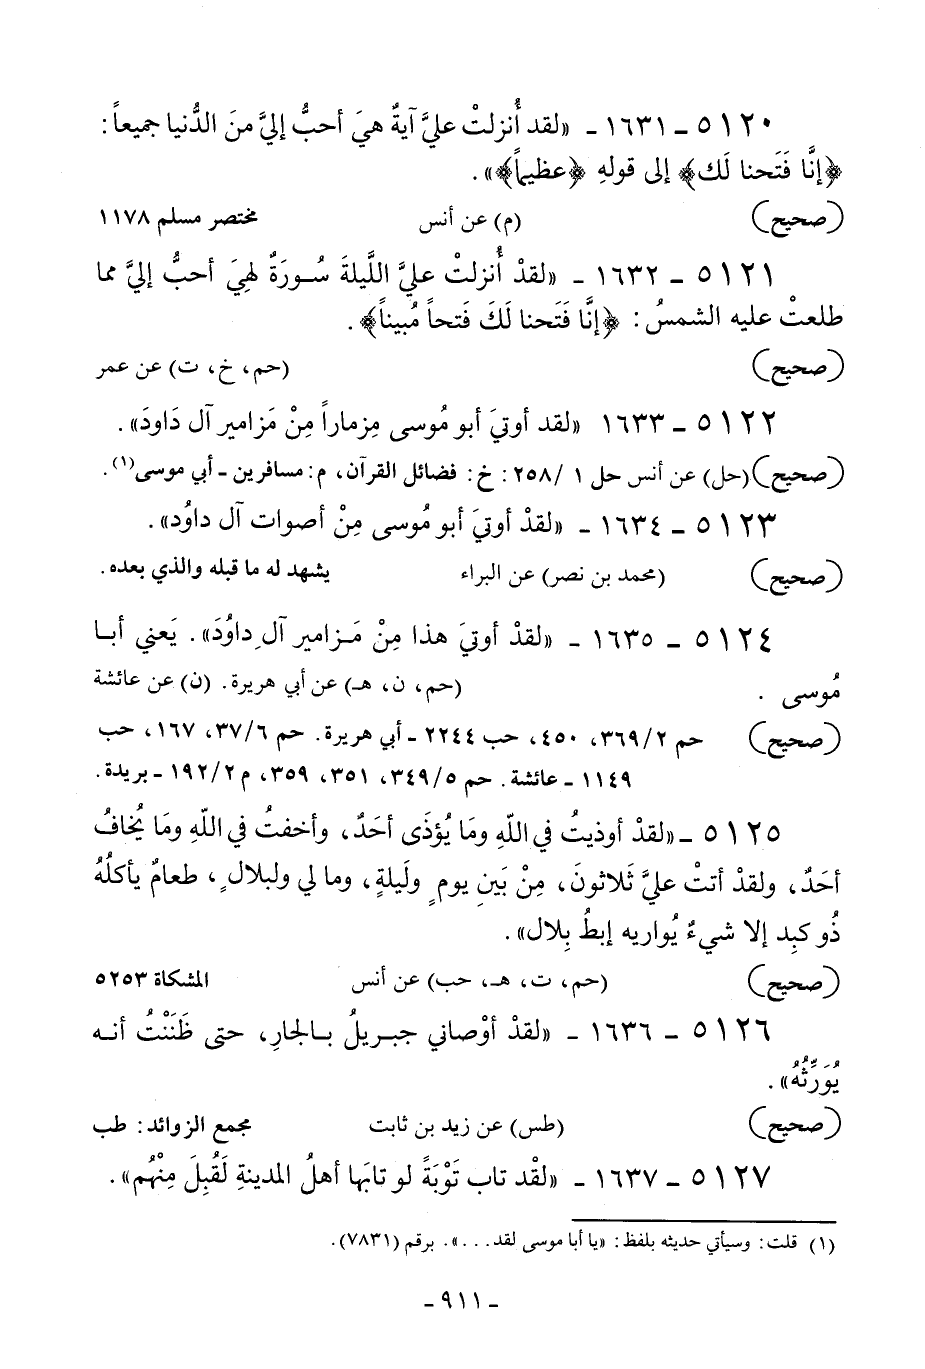 ٥١٢٠ ـ ١٦٣١ ـ «لقد أُنزلتْ عليَّ آيةٌ هيَ أحبُّ إليَّ منَ الدُّنيا جميعاً:
﴿إنَّا فَتَحنا لَك﴾ إلى قولهِ ﴿عظيماً﴾».
(صحيح) (م) عن أنس مختصر مسلم ١١٧٨
٥١٢١ ـ ١٦٣٢ ـ «لقدْ أُنزلتْ عليَّ اللَّيلةَ سُورَةٌ لهِيَ أحبُّ إليَّ مما
طلعتْ عليه الشمسُ: ﴿إنَّا فَتَحنا لَكَ فَتحاً مُبيناً﴾.
(صحيح) (حم، خ، ت) عن عمر
٥١٢٢ ـ ١٦٣٣ «لقد أوتيَ أبو مُوسى مِزماراً مِنْ مَزامير آل دَاودَ».
(صحيح) (حل) عن أنس حل ١ /٢٥٨: خ: فضائل القرآن، م: مسافرين ـ أبي موسى(١).
٥١٢٣ ـ ١٦٣٤ ـ «لقدْ أوتيَ أبو مُوسى مِنْ أصوات آل داوُد».
(صحيح) (محمد بن نصر) عن البراء يشهد له ما قبله والذي بعده.
٥١٢٤ ـ ١٦٣٥ ـ «لقدْ أوتيَ هذا مِنْ مَزامير آلِ داوُدَ». يَعني أبا
مُوسى . (حم، ن، هـ) عن أبي هريرة. (ن) عن عائشة
(صحيح) حم ٣٦٩/٢، ٤٥٠، حب ٢٢٤٤ ـ أبي هريرة. حم ٣٧/٦، ١٦٧، حب
١١٤٩ ـ عائشة. حم ٣٤٩/٥، ٣٥١، ٣٥٩، م ١٩٢/٢ ـ بريدة.
٥١٢٥ ـ «لقدْ أوذيتُ في اللّهِ ومَا يُؤذَى أحَدٌ، وأخفتُ في اللّهِ ومَا يُخافُ
أحَدٌ، ولقدْ أتتْ عليَّ ثَلاثونَ، مِنْ بَينِ يومٍ ولَيلةٍ، وما لي ولبلالٍ، طعامٌ يأكلُهُ
ذُو كبِد إلا شيءٌ يُواريه إبطُ بِلال».
(صحيح) (حم، ت، هـ، حب) عن أنس المشكاة ٥٢٥٣
٥١٢٦ ـ ١٦٣٦ ـ «لقدْ أوْصاني جبريلُ بالجارِ، حتى ظَنَنْتُ أنه
يُوَرِّثُهُ».
(صحيح) (طس) عن زيد بن ثابت مجمع الزوائد: طب
٥١٢٧ ـ ١٦٣٧ ـ «لقْد تاب تَوْبَةً لو تابَها أهلُ المدينةِ لَقُبِلَ مِنْهُم».
(١) قلت: وسيأتي حديثه بلفظ: «يا أبا موسى لقد...». برقم (٧٨٣١).
ـ ٩١١ ـ